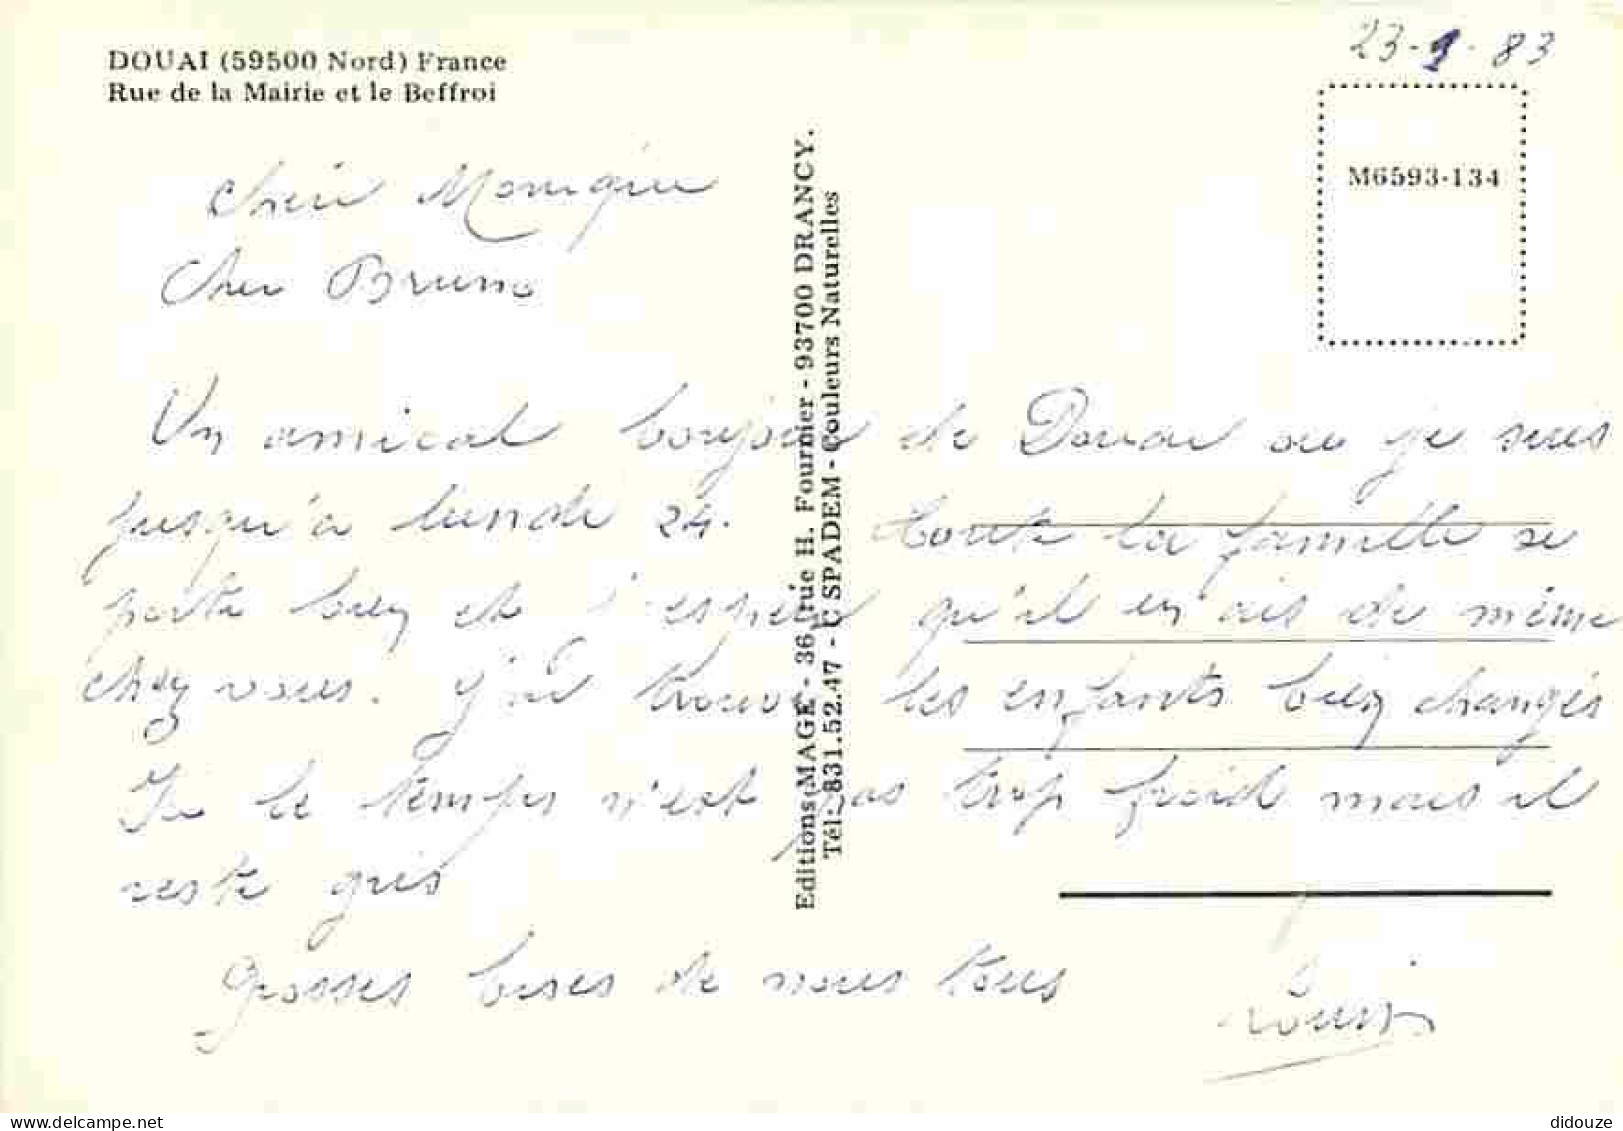 23-1-83
DOUAI (59500 Nord) France
Rue de la Mairie et le Beffroi
M6593-134
Chère Monique
Cher Bruno
Un amical bonjour de Douai ou je suis
jusqu'à lundi 24. Toute la famille se
porte bien et j'espère qu'il en ais de même
chez vous. J'ai trouvé les enfants bien changés
Ici le temps n'est pas trop froid mais il
reste gris
Grosses bises de nous tous
Louis
Editions MAGE - 36, rue H. Fournier - 93700 DRANCY.
Tél: 831.52.47 - C SPADEM - Couleurs Naturelles
delcampe.net
didouze